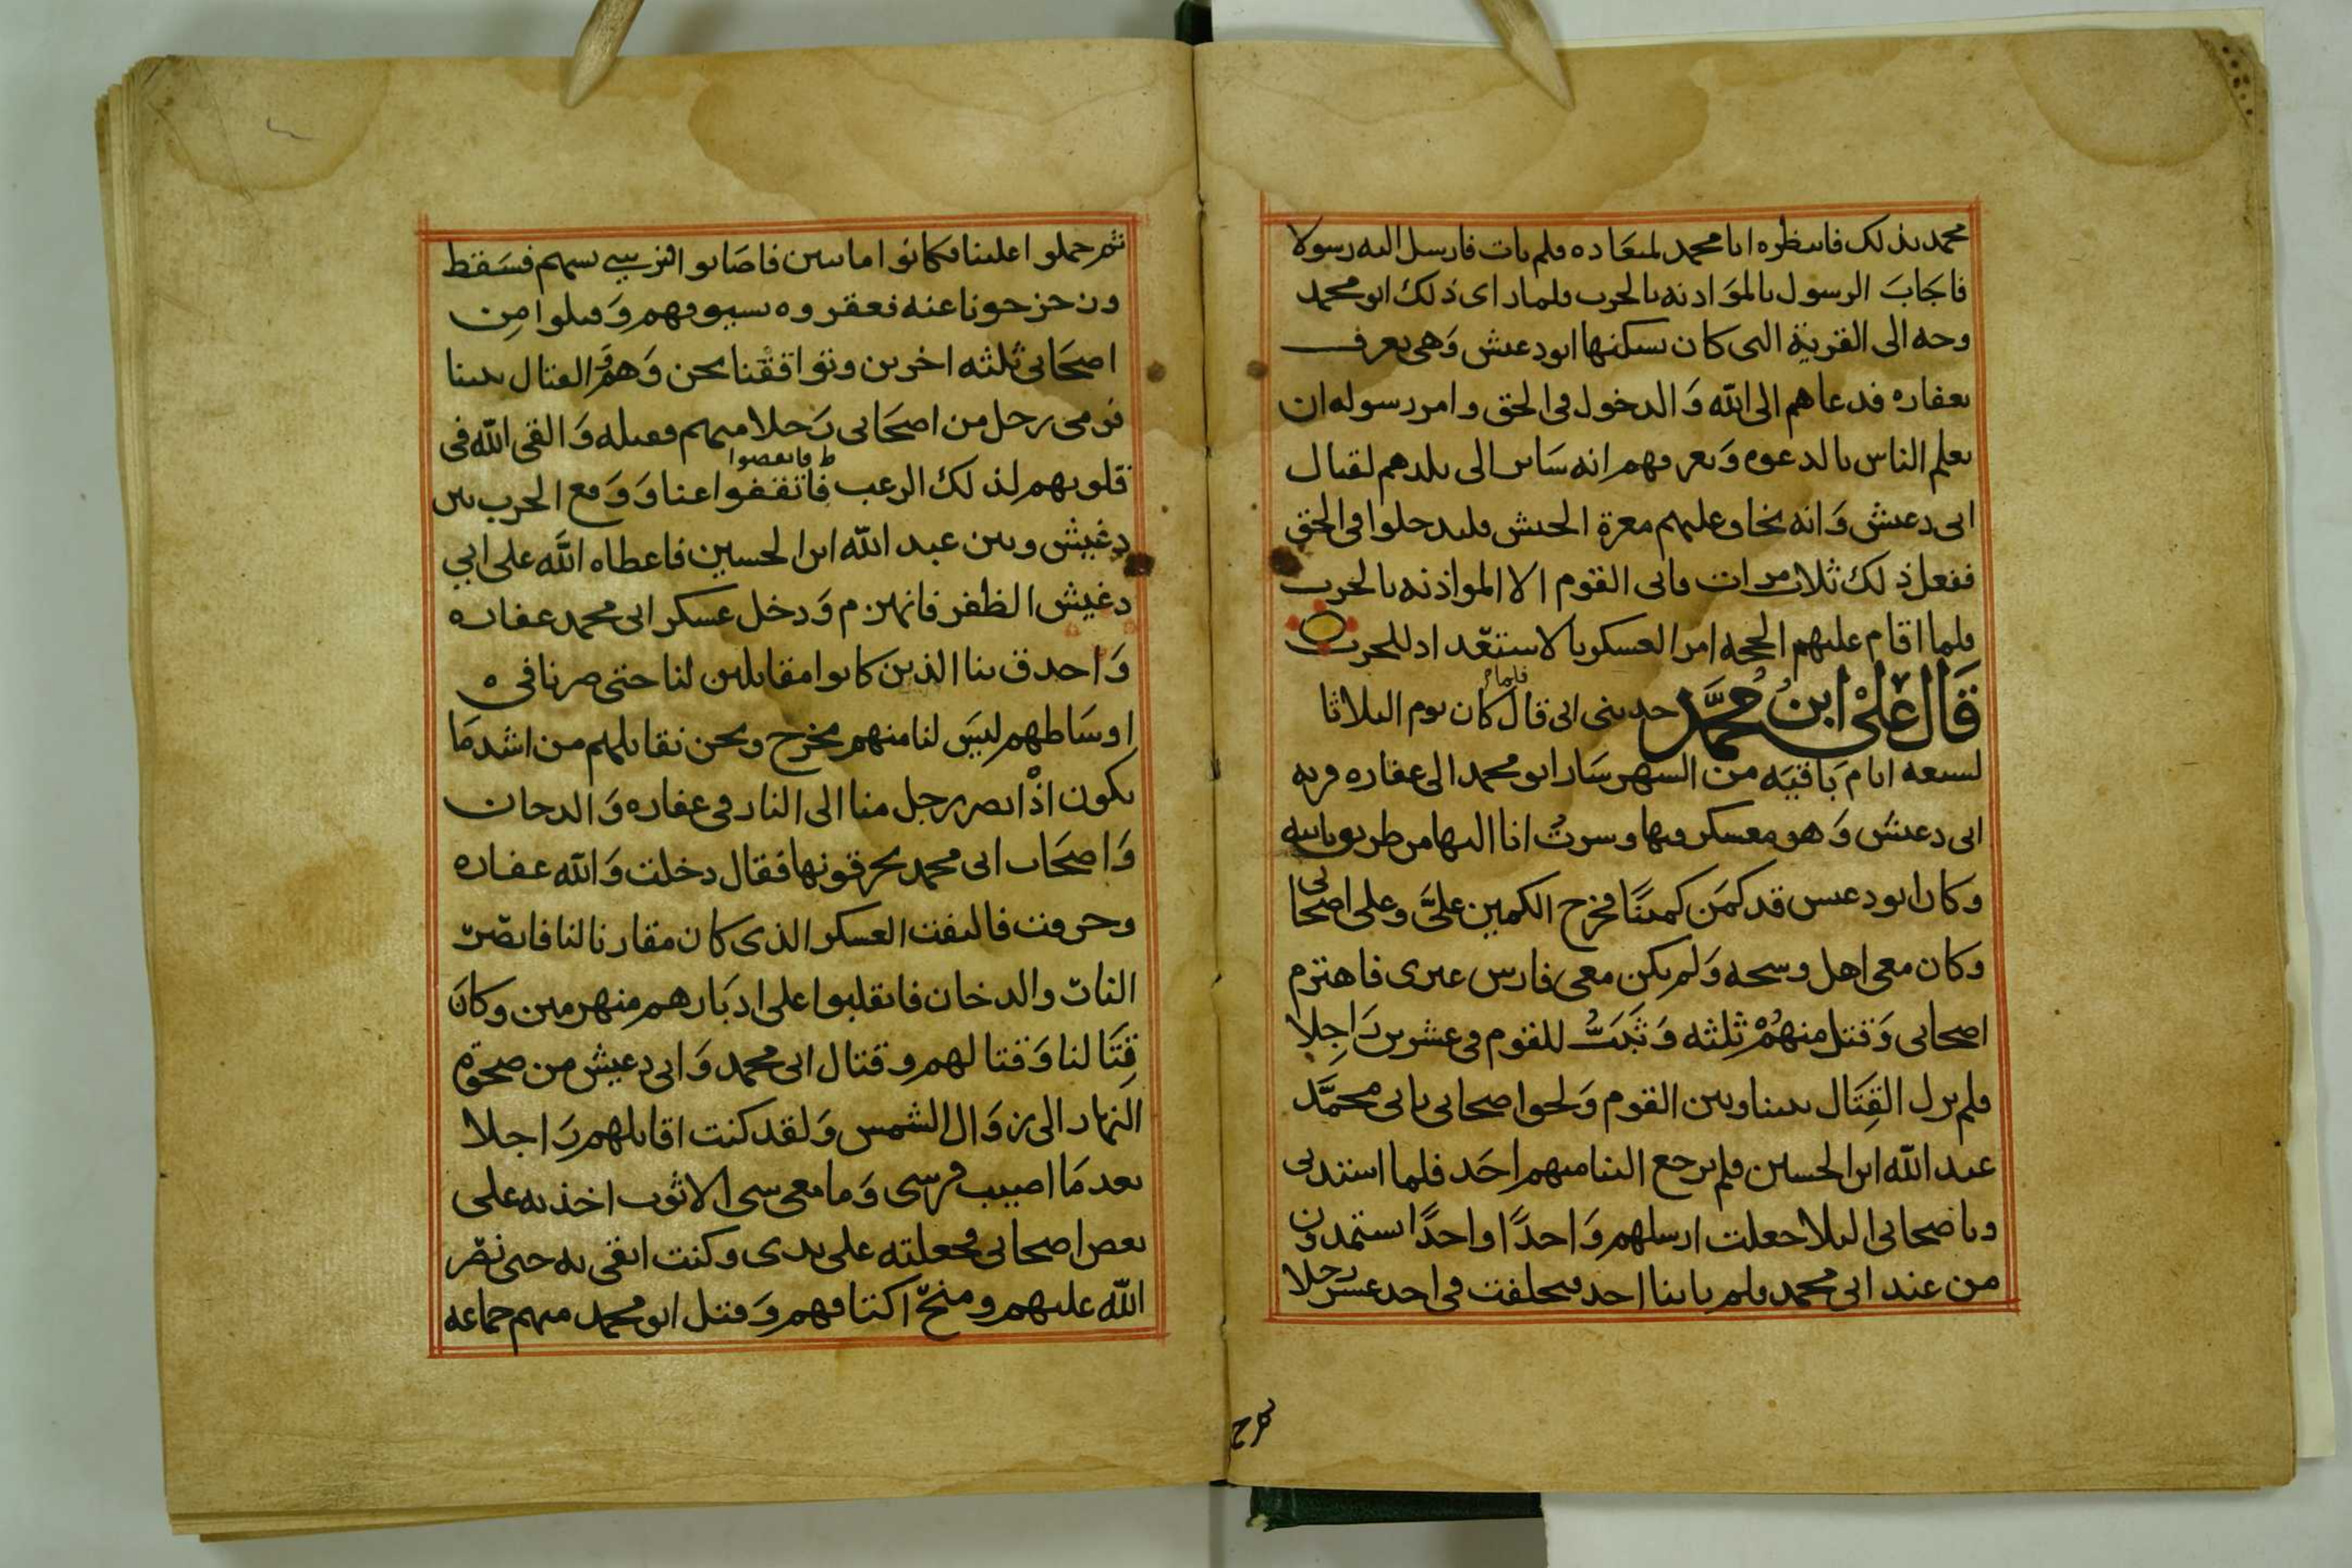 محمد بذلك فانتظره ابا محمد لميعاده فلم يات فارسل اليه رسولا
فاجَابَ الرسول بالموَادنه بالحرب فلما راى ذلك ابو محمد
وجه الى القرية التى كان يسكنها ابو دعيش وَهى تعرف
بعفاره فدعاهم الى الله وَالدخول فى الحق وامر رسوله ان
يعلم الناس بالدعوه وَيعرفهم انه سَاير الى بلدهم لقتال
ابى دعيش وَانه يخاف عليهم معرة الجيش فليدخلوا فى الحق
ففعل ذلك ثلاث مرات فابى القوم الا الموَاذنه بالحرب
فلما اقام عليهم الحجه امر العسكر بالاستعّداد للحرب
قَال عَلىْ ابنُ مُحمَّد حدثنى ابى قال فلما كان يوم الثلاثا
لسبعه ايام بَاقيَه من الشهر سَار ابو محمد الى عفاره قريه
ابى دعيش وَهو معسكر فيها وسرتُ انا اليها من طريق ثانيه
وكان ابو دعيس قد كمَن كمينًا فخرج الكمين علىَّ وعلى اصحابى
وكان معى اهل وسحه وَلم يكن معى فارس غيرى فاهتزم
اصحابى وَقتل منهُمْ ثلثه وَثَبَتُّ للقوم فى عشرين رَاجِلا
فلم يزل القِتَال بيننا وبين القوم وَلحقوا صحابى بابى محمَّد
عبد الله ابن الحسين فلم يرجع الينا منهم احَد فلما اشتد بى
وباصحابى البلا جعلت ارسلهم وَاحدًا واحدًا يستمدون
من عند ابى محمد فلم ياتنا احد فتخلفت فى احد عشر رجلا
ثم حملوا علينا فكانوا امامين فاصَابوا فرسى بسهم فسَقط
وزحزحونا عنه فعقروه بسيوفهم وَقتلوا مِن
اصحَابى ثلثه اخرين وتواقفْنا نحن وَهم وَالقتال بيننا
فرمى رجل من اصحَابى رَجلا منهم فقتله وَالقى الله فى
قلوبهم لذلك الرعب فاتقفوا عنا وَوَقع الحرب بين
ط فانفضوا
دغيش وبين عبد الله ابن الحسين فاعطاه اللَّه على ابي
دغيش الظفر فانهزم وَدخل عسكر ابى محمد عفاره
وَاحدق بنا الذين كانوا مقابلين لنا حتى صرنا فى ه
اوسَاطهم ليسَ لنا منهم مخرج ونحن نقاتلهم من اشد مَا
يكون اذْ ابصر رجل منا الى النار فى عفاره وَالدخان
وَاصحَاب ابى محمد يحرقونها فقال دخلت وَالله عفاره
وحرقت فالتفت العسكر الذى كان مقارنا لنا فابصّر
النار والدخان فانقلبوا على ادبَارهم منهزمين وكانَ
قِتَالنا وَقتالهم وقتال ابى محمد وَابى دعيش من صحوَة
النهار الى زوَال الشمس وَلقد كنت اقاتلهم رَاجلا
بعد مَا اصيب فرسى وَما معى شى الا ثوب اخذته على
بعض اصحابى فجعلته على يدى وكنت اتقى به حتى نصر
الله عليهم ومنحّ اكتافهم وَقتل ابو محمد منهم جماعه